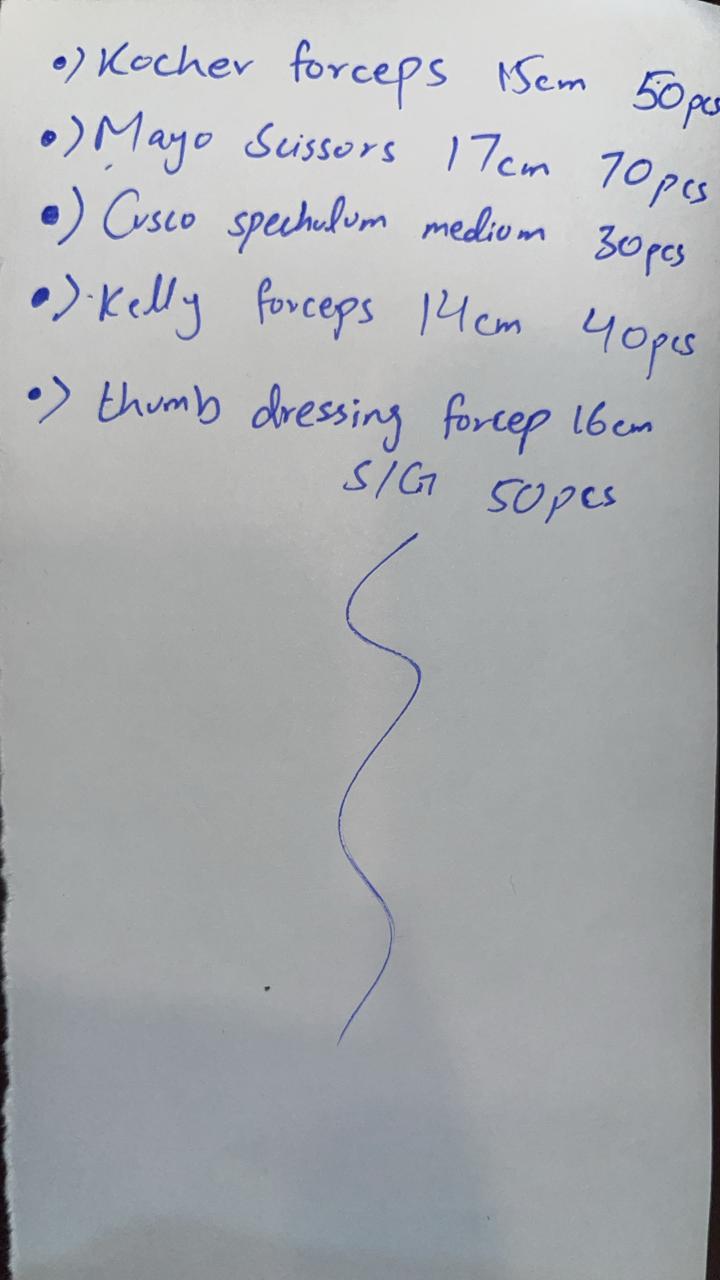 •) Kocher forceps 15cm 50pcs
•) Mayo Scissors 17cm 70pcs
•) Cusco spechulum medium 30pcs
•) Kelly forceps 14cm 40pcs
•) thumb dressing forcep 16cm
S/G 50pcs